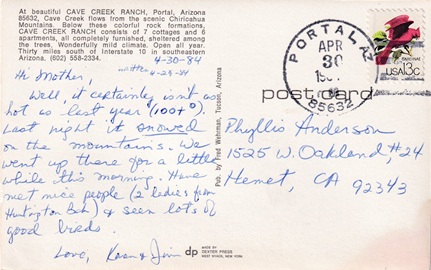 At beautiful CAVE CREEK RANCH, Portal, Arizona
85632, Cave Creek flows from the scenic Chiricahua
Mountains. Below these colorful rock formations,
CAVE CREEK RANCH consists of 7 cottages and 6
apartments, all completely furnished, sheltered among
the trees. Wonderfully mild climate. Open all year.
Thirty miles south of Interstate 10 in southeastern
Arizona. (602) 558-2334.
4-30-84
written
4-29-84
Hi Mother,
Well, it certainly isn't as
hot as last year (100+°).
Last night it snowed
on the mountains. We
went up there for a little
while this morning. Have
met nice people (2 ladies from
Huntington Bch) & seen lots of
good birds.
Love, Karen & Jim
Pub. by Fred Wehrman, Tucson, Arizona
dp
MADE BY
DEXTER PRESS
WEST NYACK, NEW YORK
PORTAL, AZ
APR
30
85632
USA 13c
post card
Phyllis Anderson
1525 W. Oakland, #24
Hemet, CA 92343